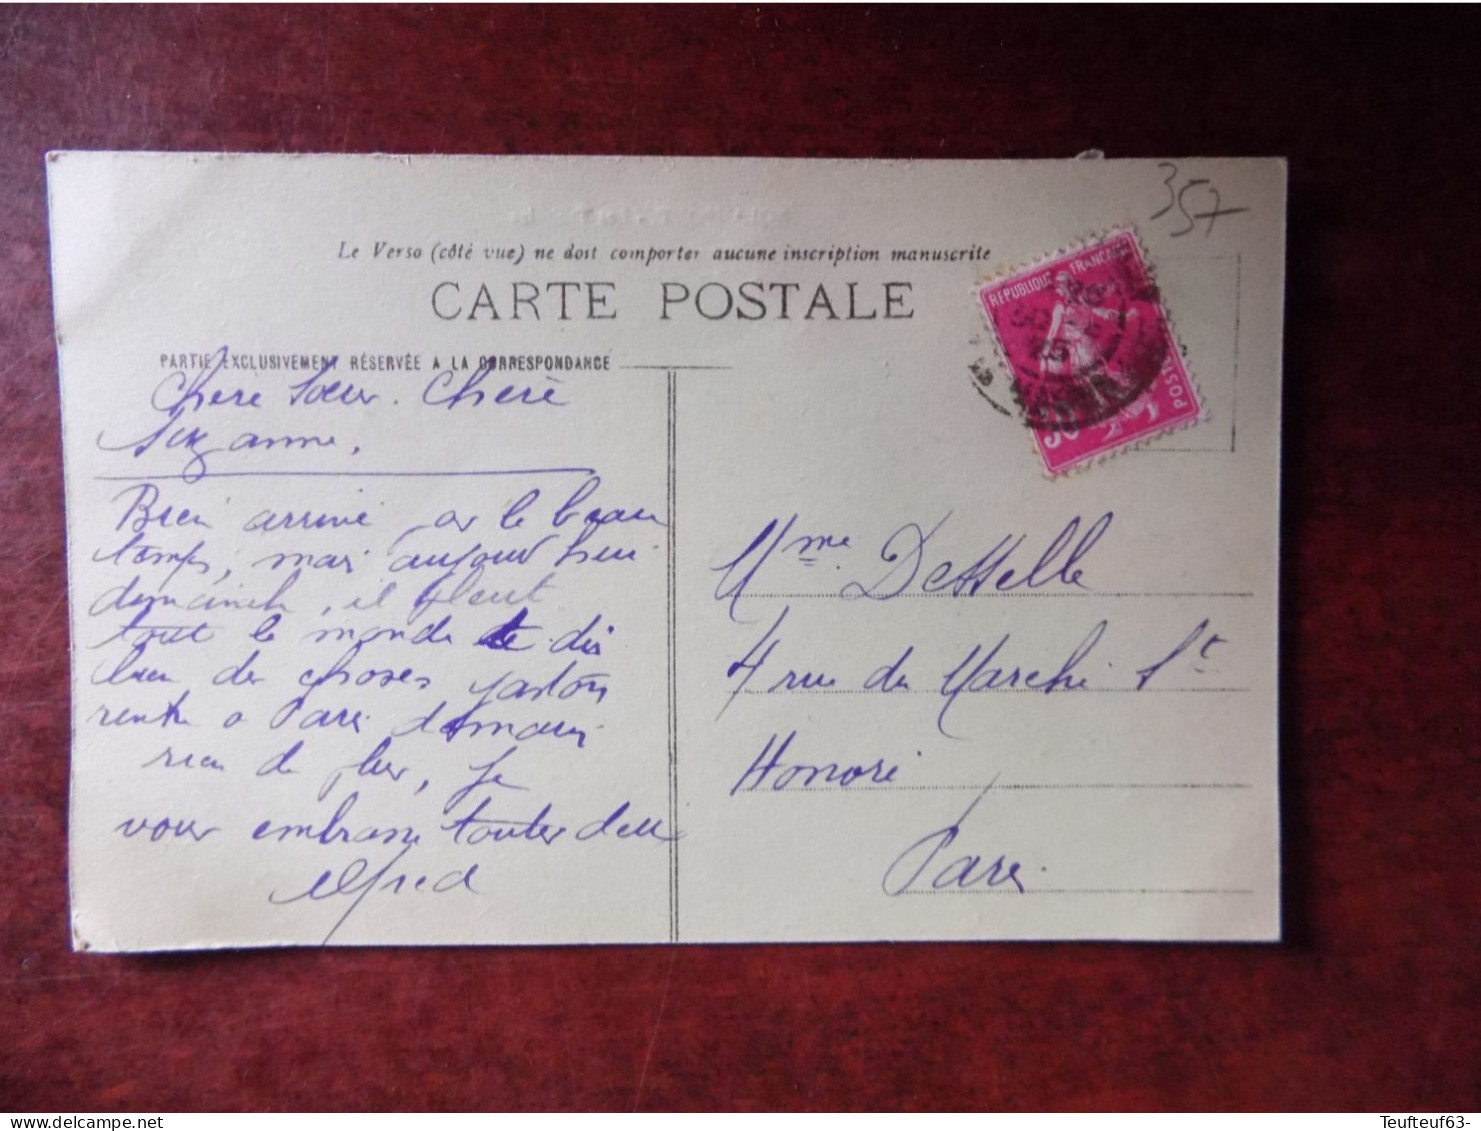 357
Le Verso (côté vue) ne doit comporter aucune inscription manuscrite
CARTE POSTALE
RÉPUBLIQUE FRANÇAISE
POSTES
PARTIE EXCLUSIVEMENT RÉSERVÉE A LA CORRESPONDANCE
Chere Soeur. Chere
Suzanne,
Bien arrivé par le beau
temps, mais aujourd'hui
dimanche, il pleut
tout le monde te dis
bien des choses gaston
rentre a Paris demain
rien de plus, je
vous embrasse toutes deux
Alfred
Mme Desselle
4 rue du Marché St
Honoré
Paris
Teufteuf63-